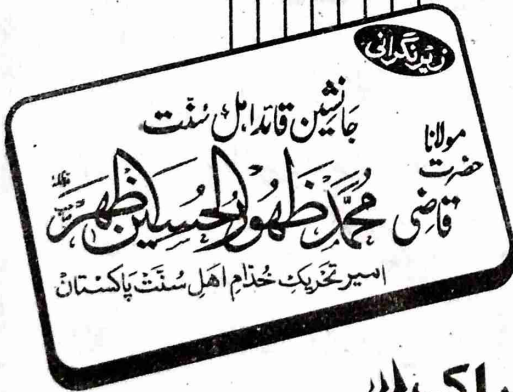 زیرِ نگرانی
جانشین قائد اہل سُنّت
حضرت مولانا قاضی محمّد ظہورالحسین اظہر
امیر تحریک خدام اھل سُنّت پاکستان